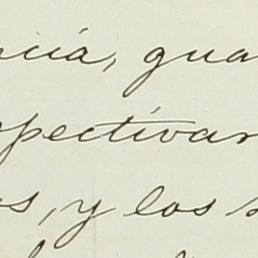 ncia, gua
spectivar
os, y los s